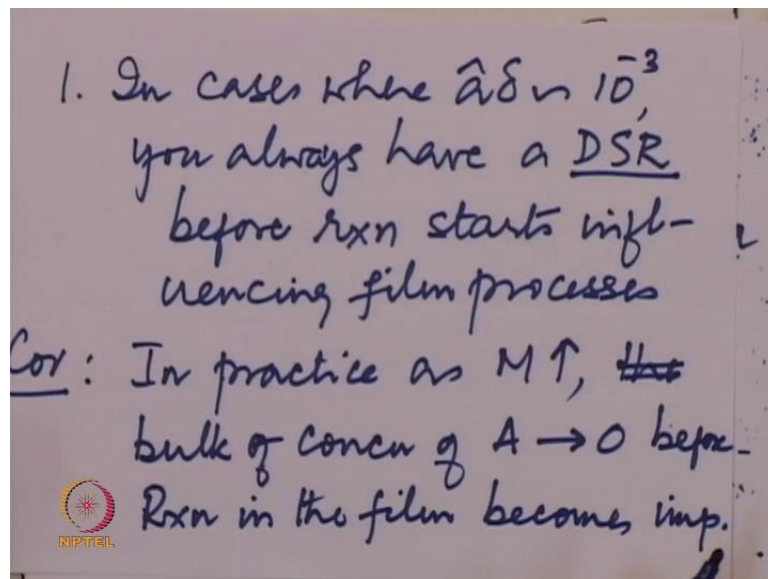 1. In cases where âδ ~ 10⁻³,
you always have a DSR
before rxn starts infl-
uencing film processes
Cor: In practice as M↑,
bulk of concn of A → 0 before
Rxn in the film becomes imp.
NPTEL